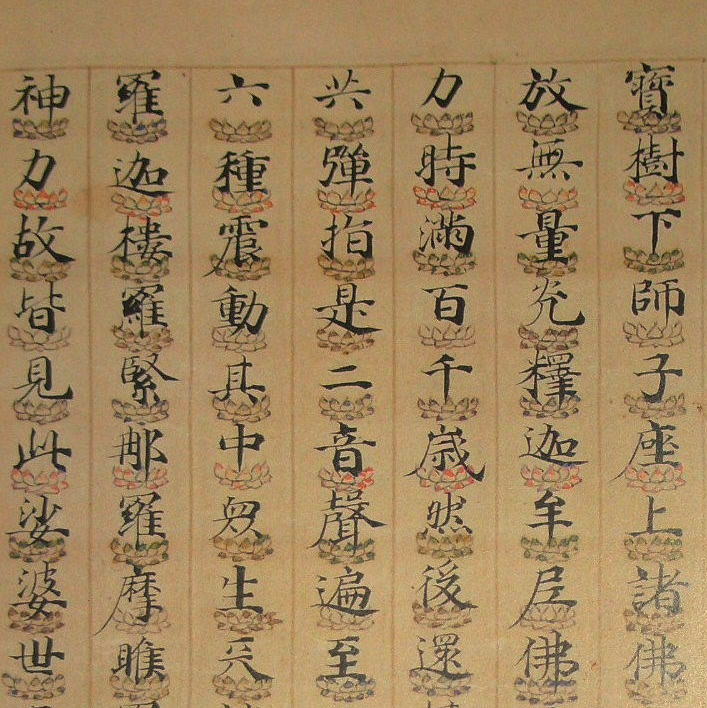 寶樹下師子座上諸佛
放無量光釋迦牟尼佛
力時滿百千歲然後還
共彈指是二音聲遍至
六種震動其中眾生天
羅迦樓羅緊那羅摩睺
神力故皆見此娑婆世